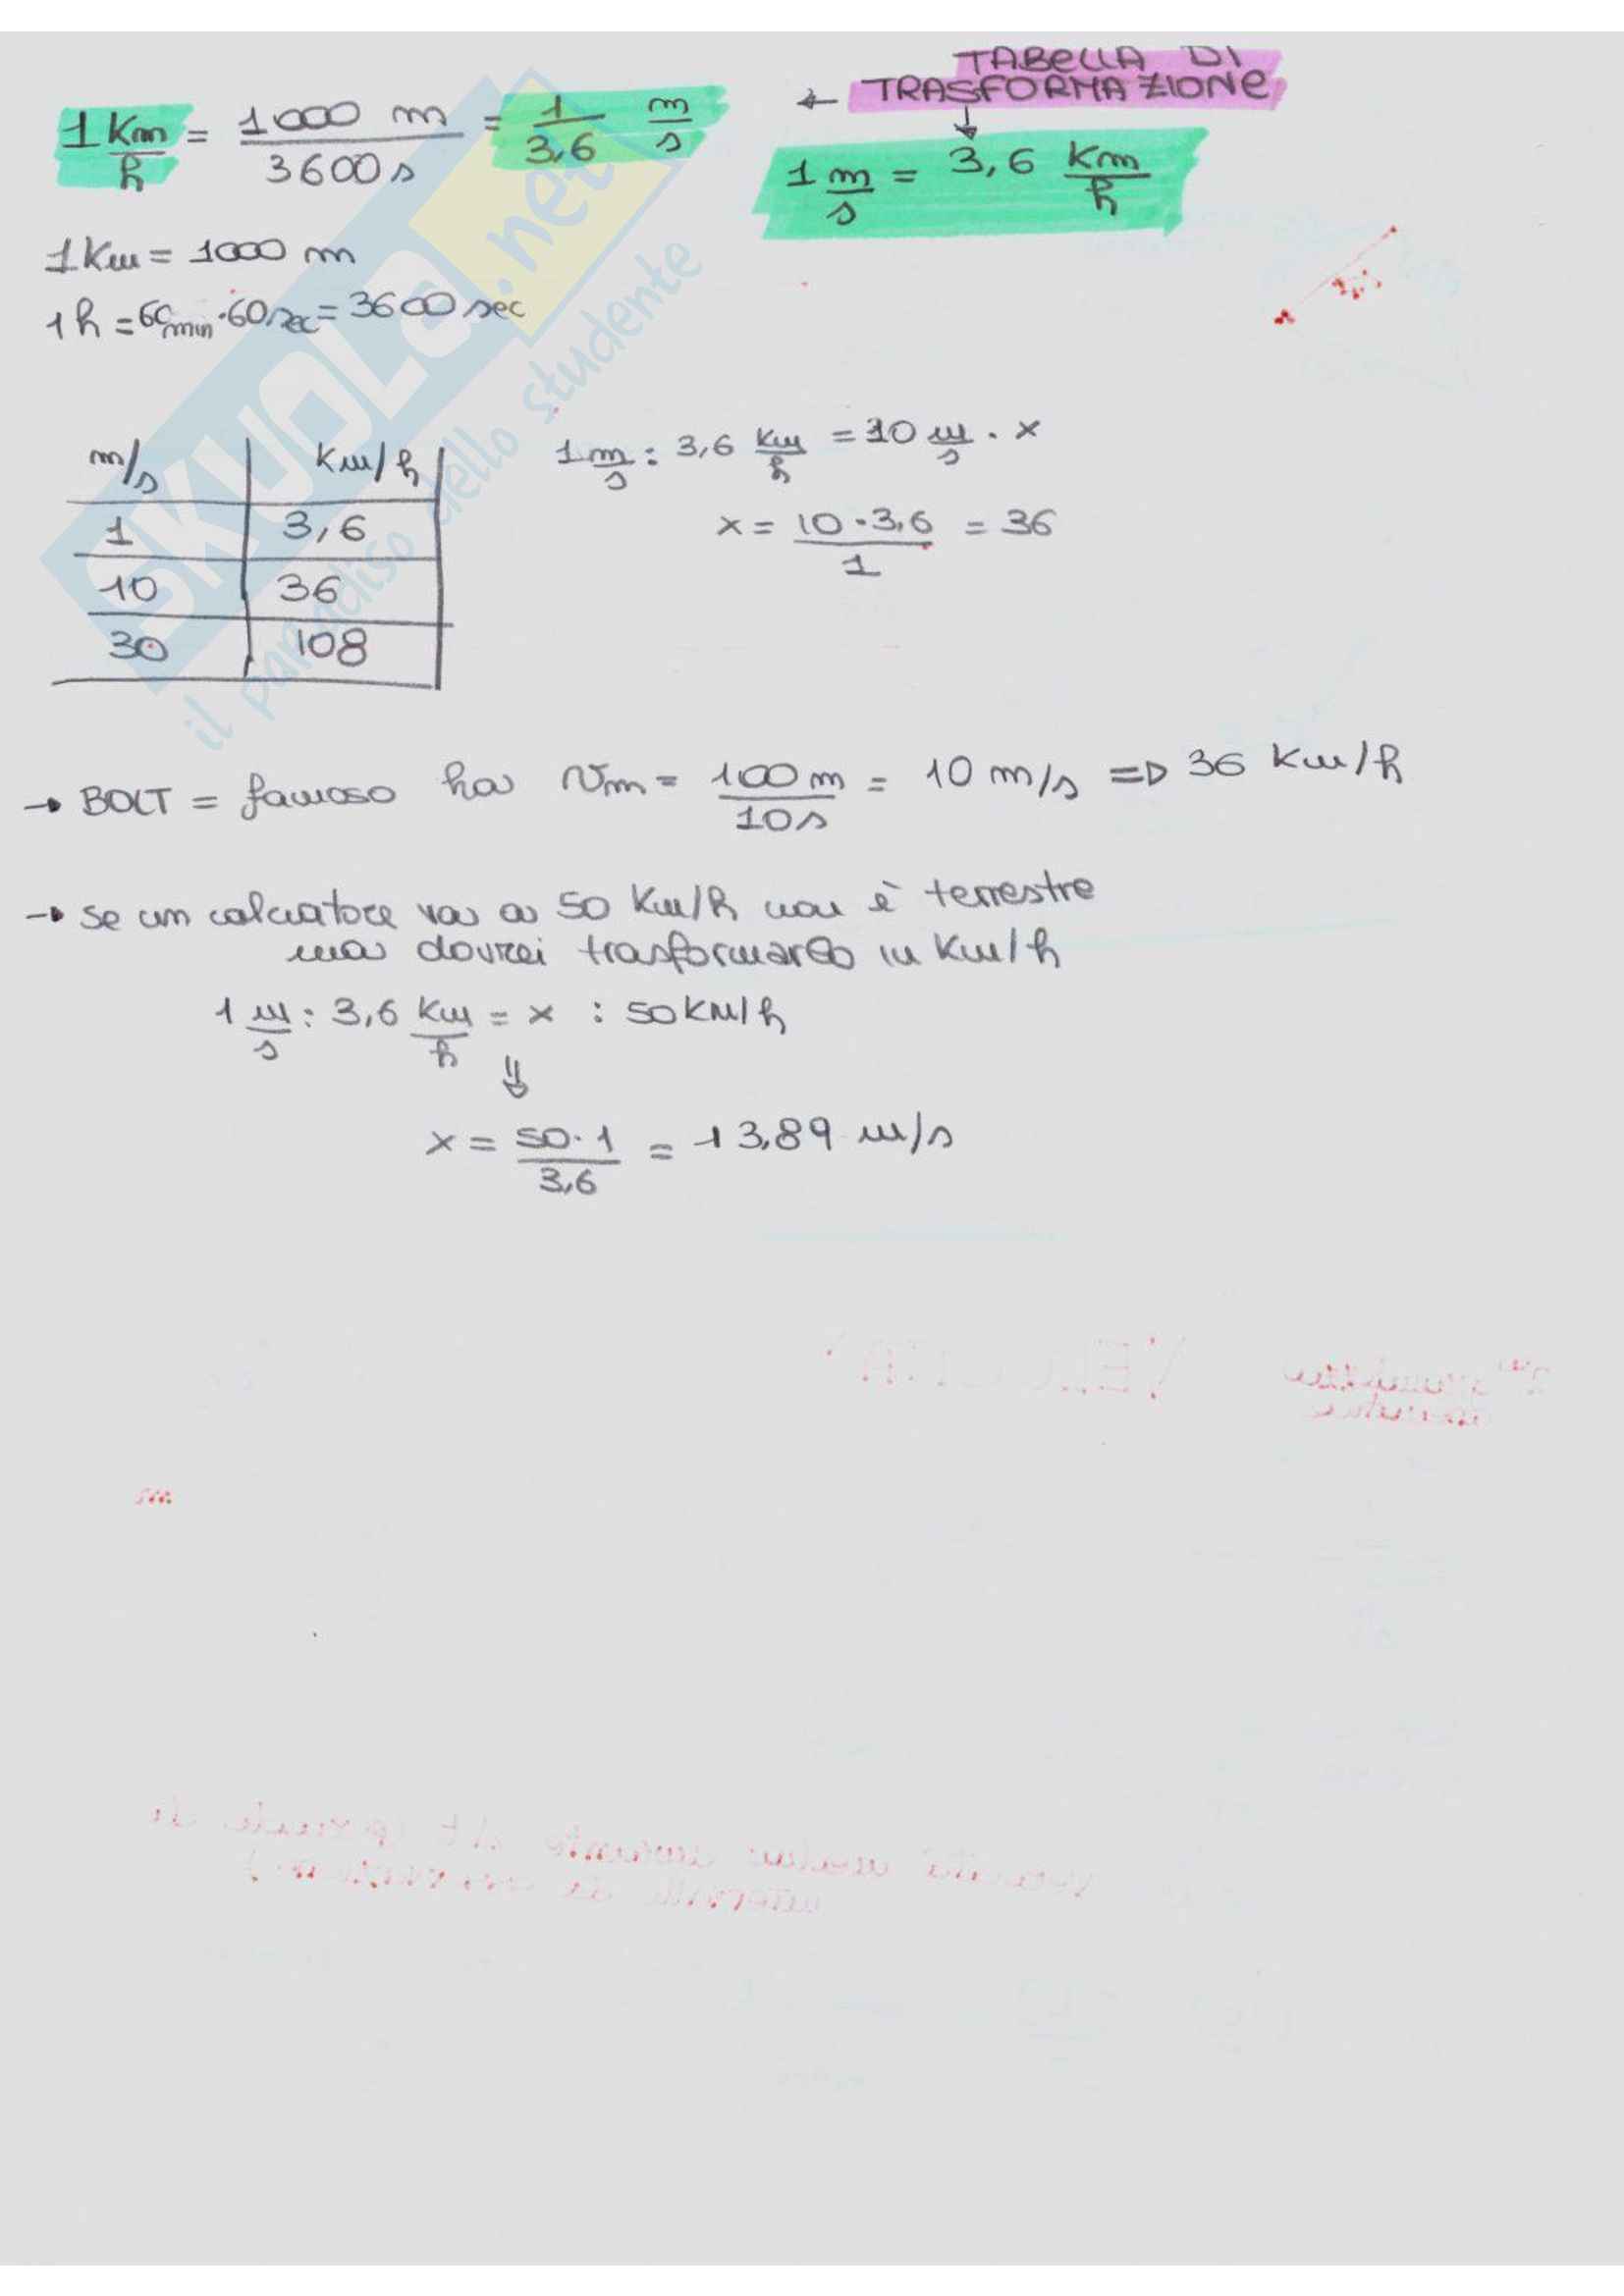 TABELLA DI
← TRASFORMAZIONE
↓
1 Km/h = 1000 m / 3600 s = 1/3,6 m/s
1 m/s = 3,6 Km/h
1 Km = 1000 m
1 h = 60 min · 60 sec = 3600 sec
m/s | Km/h
1 | 3,6
10 | 36
30 | 108
1 m/s : 3,6 Km/h = 10 m/s · x
x = 10 · 3,6 / 1 = 36
→ BOLT = famoso ha vm = 100 m / 10 s = 10 m/s => 36 Km/h
→ se un calciatore va a 50 Km/h non è terrestre
ma dovrei trasformarlo in Km/h
1 m/s : 3,6 Km/h = x : 50 KM/h
⇓
x = 50 · 1 / 3,6 = 13,89 m/s
SKUOLA.net
il paradiso dello studente